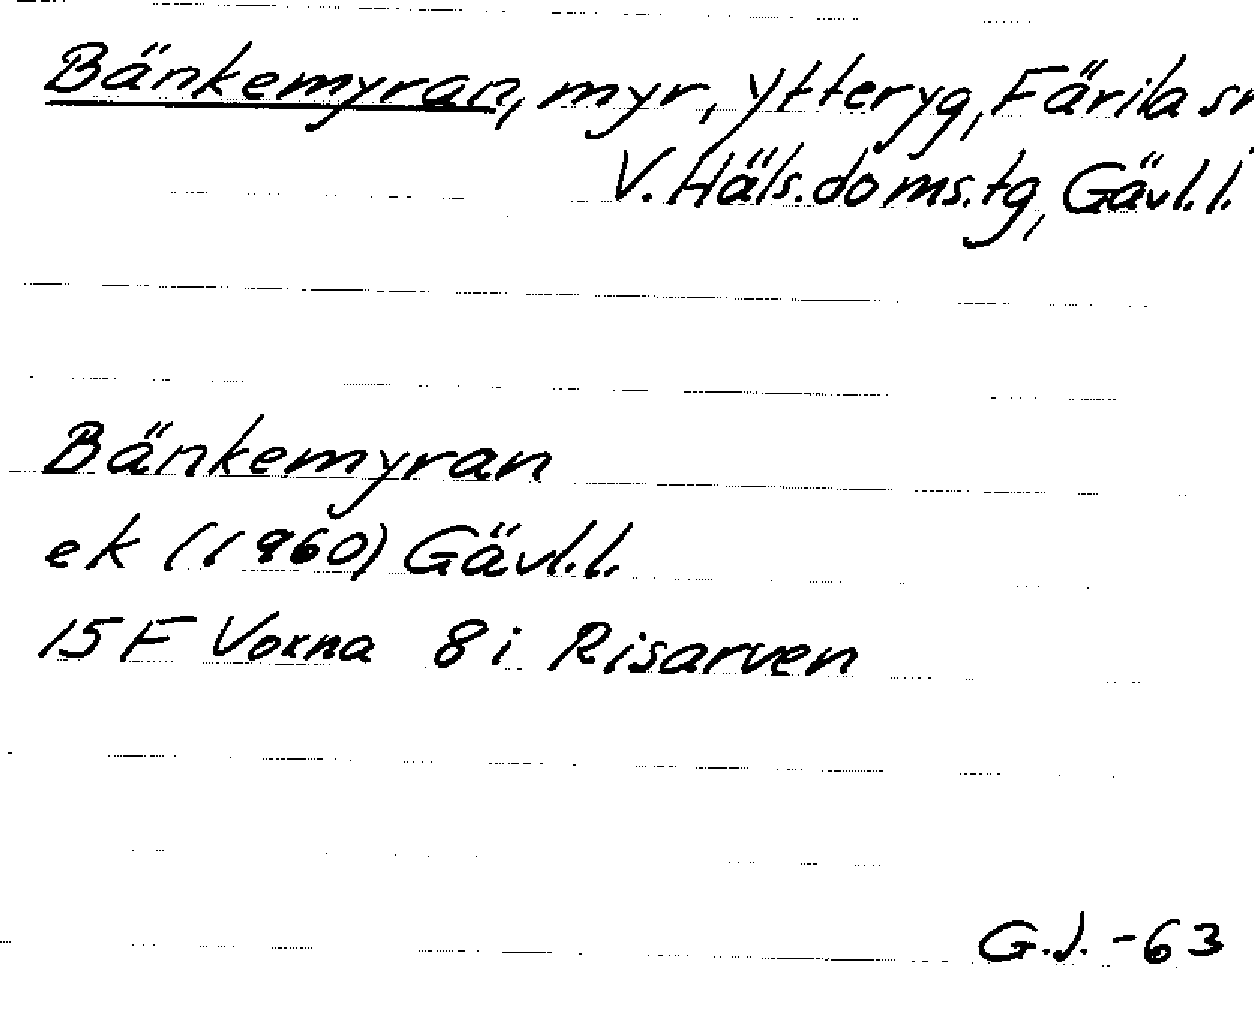 Bänkemyran, myr, Ytteryg, Färila sn
V. Häls. doms. tg, Gävl. l.
Bänkemyran
ek (1960) Gävl. l.
15 F Voxna 8 i Risarven
G.J. -63